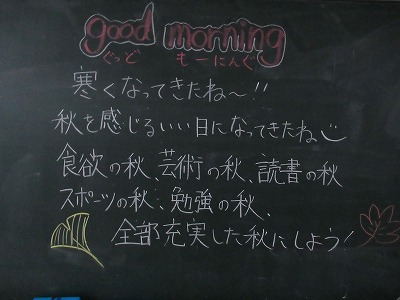 good morning
ぐっど もーにんぐ
寒くなってきたね～!!
秋を感じるいい日になってきたね
食欲の秋、芸術の秋、読書の秋
スポーツの秋、勉強の秋、
全部充実した秋にしよう!